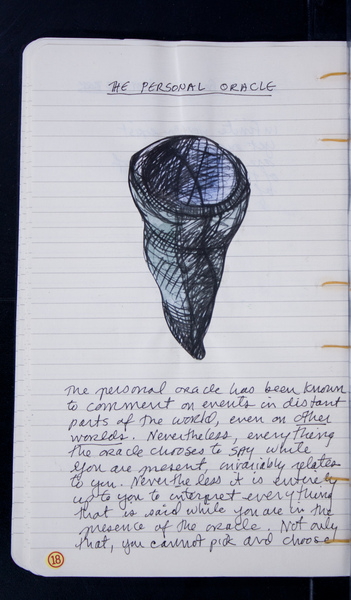 THE PERSONAL ORACLE
The personal oracle has been known
to comment on events in distant
parts of the world, even on other
worlds. Nevertheless, everything
the oracle chooses to spy while
you are present, invariably relates
to you. Neverthe less it is entirely
up to you to interpret everything
that is said while you are in the
presence of the oracle. Not only
that, you cannot pick and choose
18